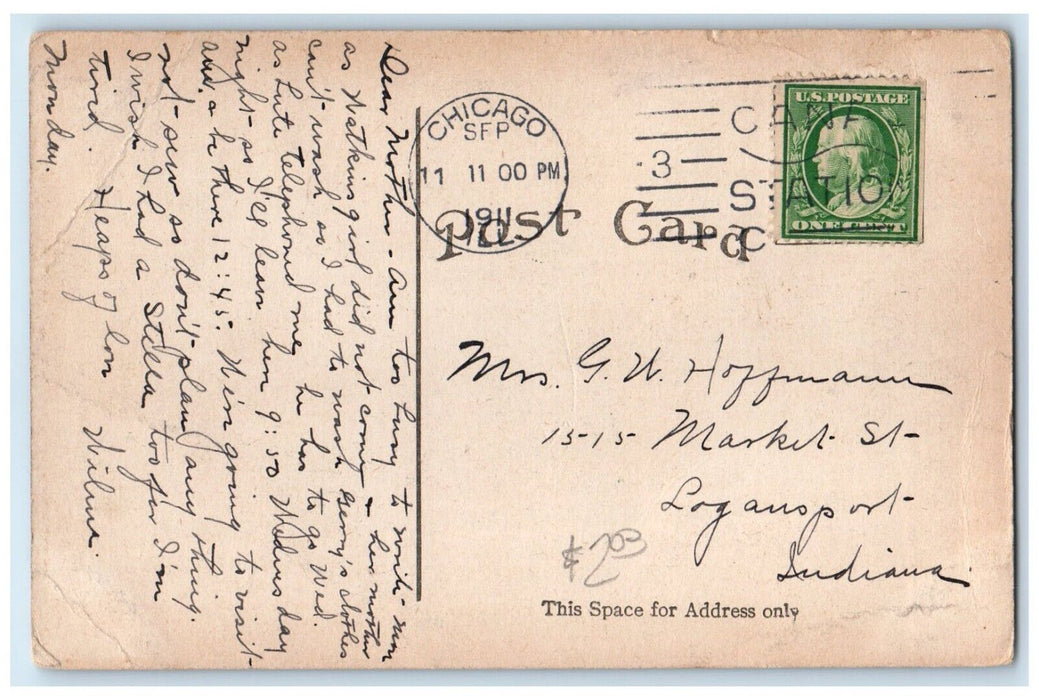 Dear Mother – Am too busy to write more
as Watkins girl did not come & her mother
can't wash so I had to wash Gerry's clothes
as Lute telephoned me he has to go Wed.
night – so I'll leave here 9:50 Wednesday
and be there 12:45. We're going to visit –
not sew so don't plan any thing.
I wish I had a Stella too for I'm
tired. Heaps of love Wilma.
Monday.
CHICAGO
SEP
11 11 00 PM
1911
ILL.
3
CANAL
STATION
C
U.S. POSTAGE
ONE CENT
Post Card
Mrs. G. W. Hoffmann
1515 Market St –
Logansport –
Indiana.
$703
This Space for Address only